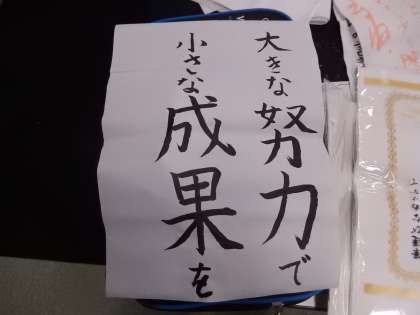 大きな努力で
小さな成果を